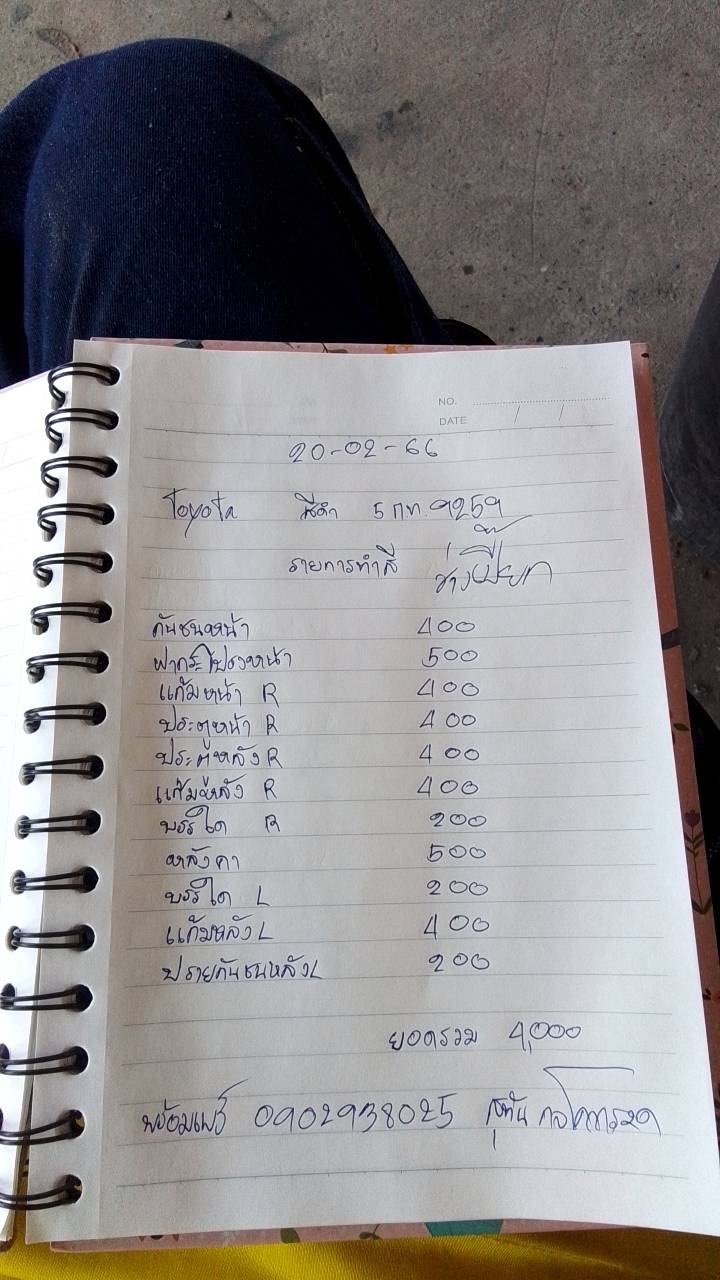 NO.
DATE / /
20-02-66
Toyota สีดำ 5 กท 9259
รายการทำสี ช่างเปี๊ยก
กันชนหน้า 400
ฝากระโปรงหน้า 500
แก้มหน้า R 400
ประตูหน้า R 400
ประตูหลัง R 400
แก้มหลัง R 400
บรรได R 200
หลังคา 500
บรรได L 200
แก้มหลัง L 400
ปรายกันชนหลัง L 200
ยอดรวม 4,000
พร้อมเพย์ 0902938025